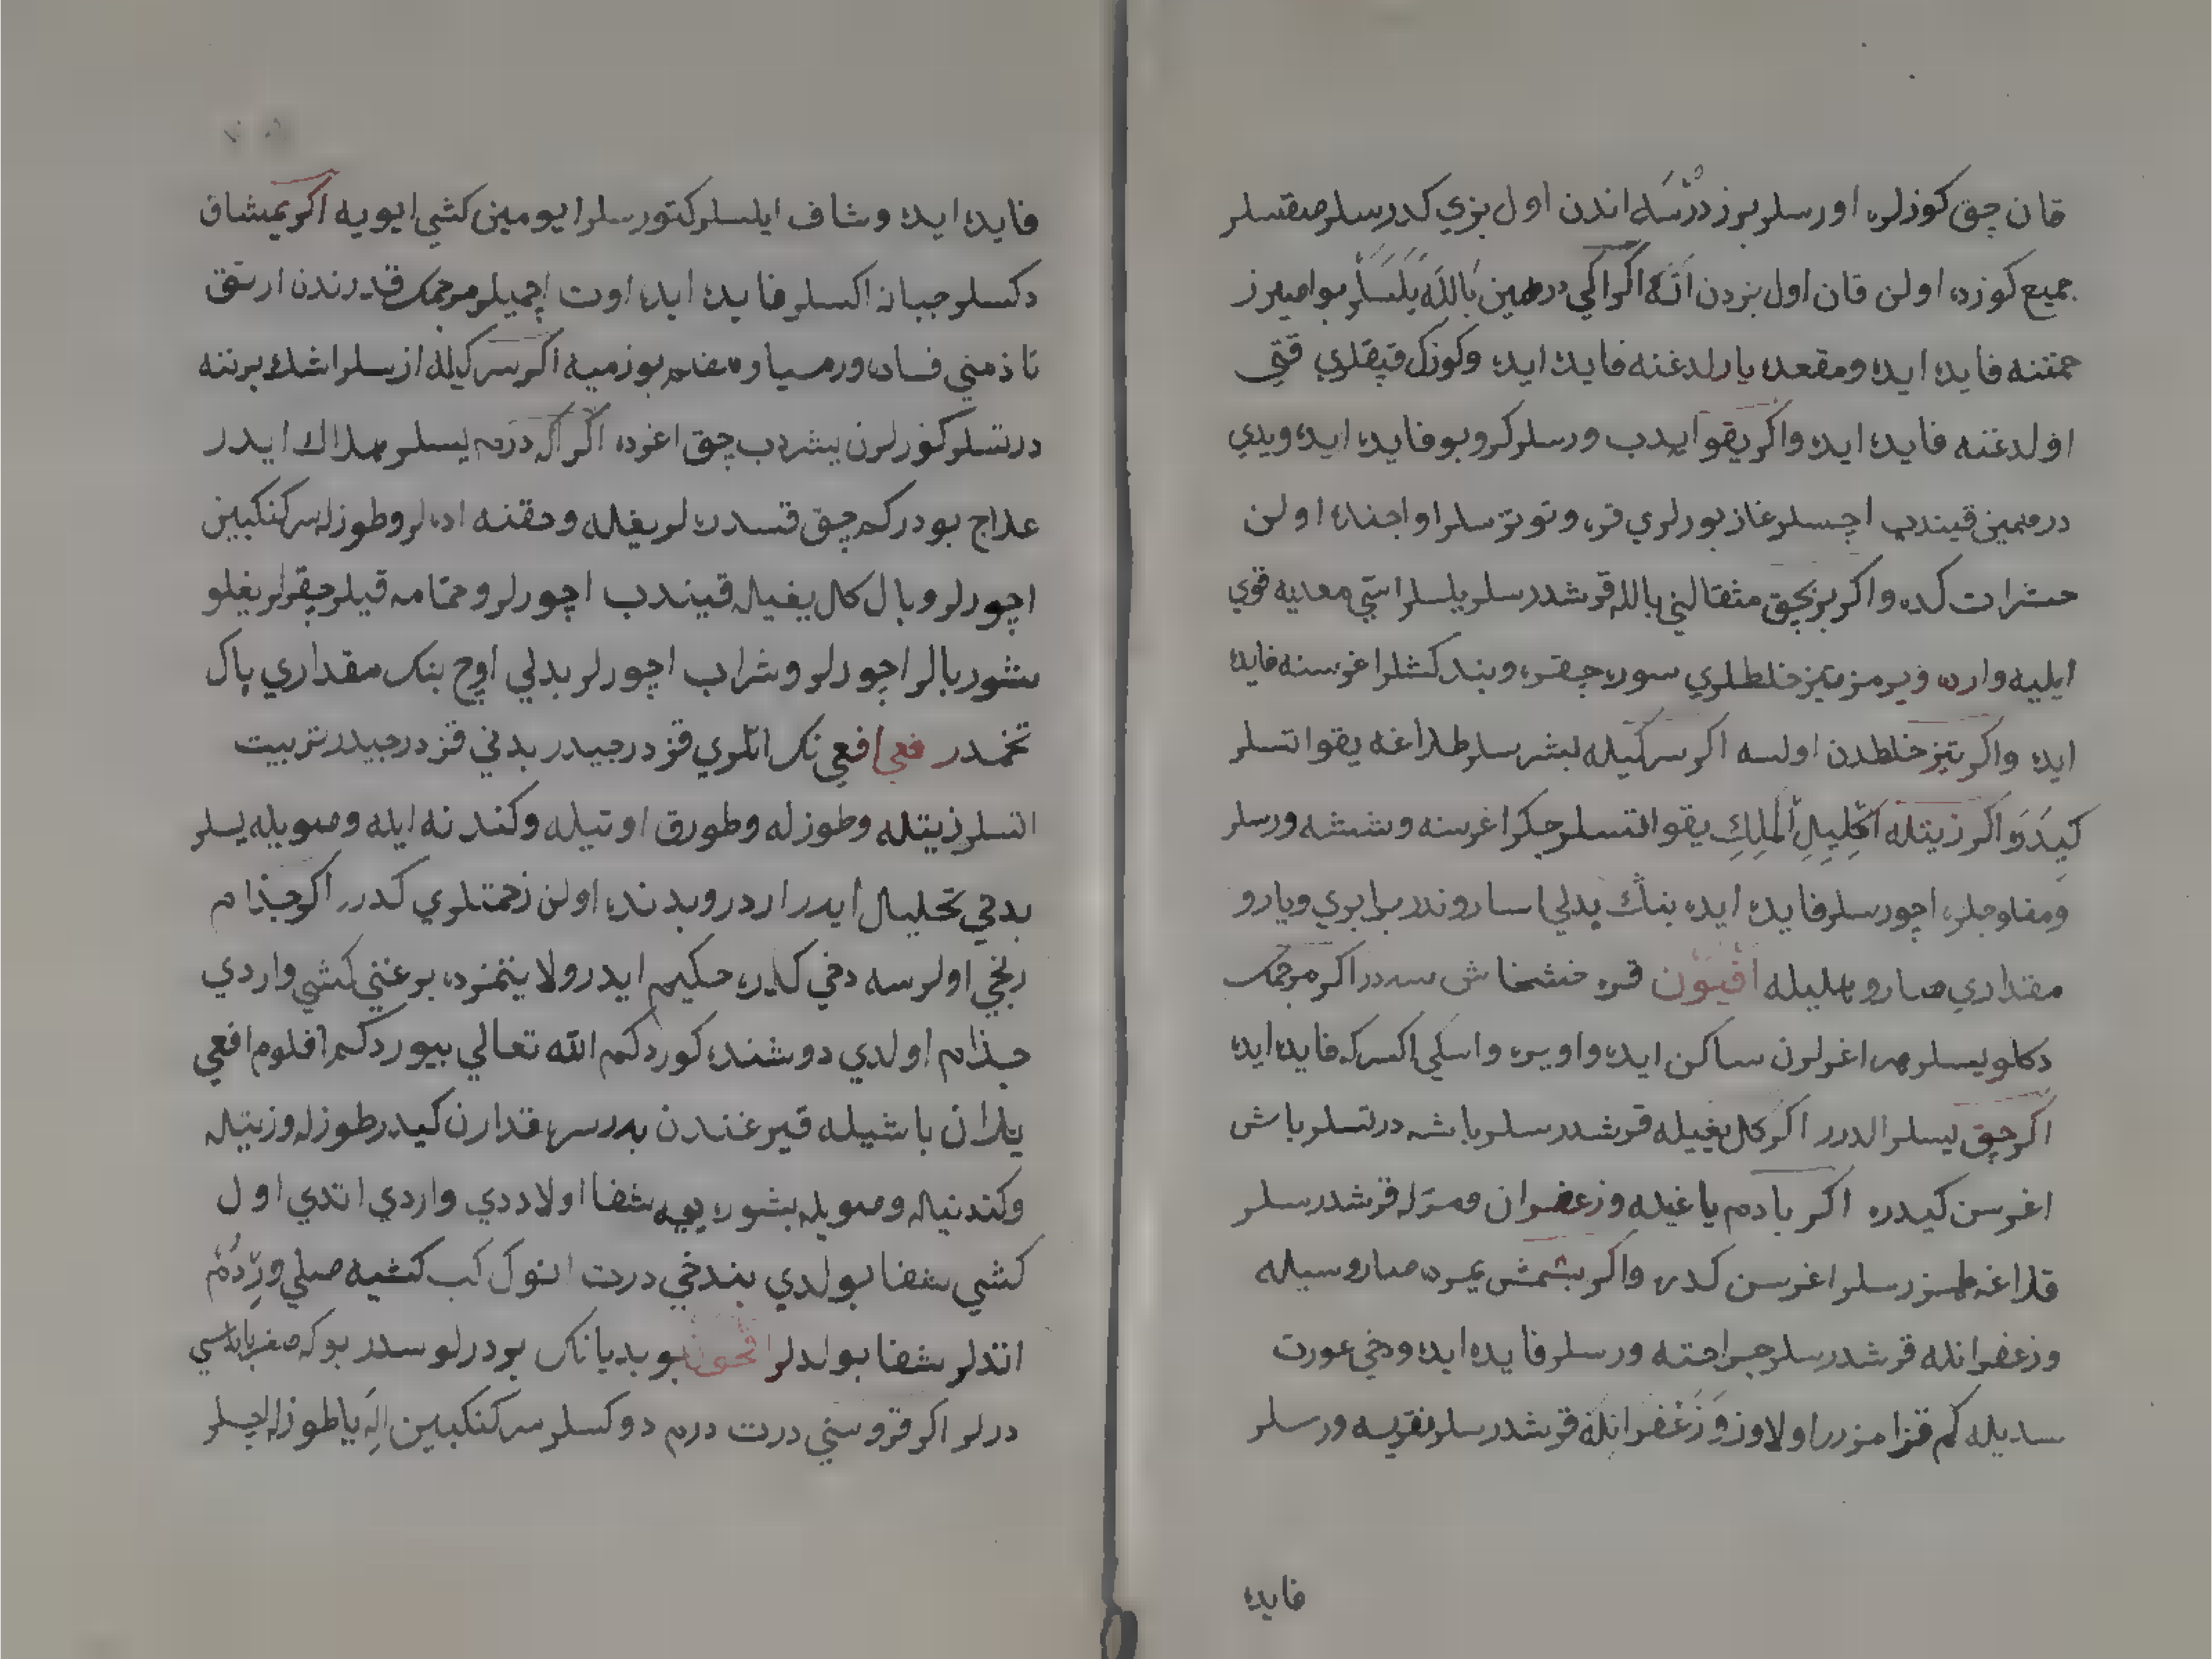 قان چق كوزلره اورسلر برز درتسه اندن اول بزي كدرسلر صقسلر
جميع كوزده اولن قان اول بزدن انه اكر اكي درهمين بالله يلسلر بواصيرز
حمتنه فايده ايده ومقعده يارلدغنه فايده ايده وكوزك قپقلري قتي
اولدغنه فايده ايده واكر يقو ايدب ورسلر كروبو فايده ايده ويدي
درهمين قيندب اچسلر غاز بورلري قره وتوتزسلر اواجنده اولن
حشرات كده واكر بر بچق مثقالني بالله قرشدرسلر يلسلر استي معديه قوي
ايليه وارده ويرمز يتيز خلطلري سوره چقره وبند كشلر اغرسنه فايده
ايده واكر يتيز خلطدن اولسه اكر سركيله بشرسلر طلاغه يقو اتسلر
كيدر واكر زيتله اكليل الملك يقو اتسلر جكر اغرسنه وششه ورسلر
ومفلوجلره اچورسلر فايده ايده بنك بدلي اساروندر برابري ويارو
مقداري صارو هليله افيون قره خشخاش سدر اكر مرجمك
دكلو يسلر هر اغرلرن ساكن ايده واويره واسكي اكسركه فايده ايده
اكر چق يسلر الدرر اكر كل يغيله قرشدرسلر باشه درتسلر باش
اغرسن كيدره اكر بادم ياغيله وزعفران ومرله قرشدرسلر
قلاغه طمزرسلر اغرسن كدره واكر بشمش يمرده صاروسيله
وزعفرانله قرشدرسلر جراحته ورسلر فايده ايده ودخي عورت
سديله كم قزا مزرر اولا وزعفرانله قرشدرسلر نقريسه ورسلر
فايده
فايده ايده وشاف ايلسلر كتورسلر ايومين كشي ايويه اكر يمشاق
دكسلر جبانه اكسلر فايده ايده اوت اچميلر مرجمك قدرندن ارتق
تا ذهني فساده ورميا وهضم بوزميه اكر سركيله ازسلر اشك برننه
درتسلر كوزلرن يشردب چق اغرده اكر ال درم يسلر هلاك ايدر
علاج بودر كم چق قسدره لر يغله وحقنه ادهلر وطوزله سركنكبين
اچورلر وبال كل يغيله قيندب اچورلر وحمامه قيلر چقرلر يغلو
شوربالر اچورلر وشراب اچورلر بدلي اوچ بنك مقداري پاك
تخمدر فعي افعي نك اتلري قز درجيدر بدني قز درجيدر تربيت
اتسلر زيتله وطوزله وطورق اوتيله وكندنه ايله وصويله يسلر
بدخي تحليل ايدر اردر وبدنده اولن زحمتلري كدرر اكر جذام
رنجي اولرسه دخي كدره حكيم ايدر ولايتمزده بر غني كشي واردي
جذام اولدي دوشنده كوردكم الله تعالي بيوردكم افلوم افعي
يلان باشيله قيرغندن بدرسره قدارن كيدر طوزله وزيتله
وكندنيله وصويله بشوره ييه شفا اولا ددي واردي اتدي اول
كشي شفا بولدي بندخي درت انوك كب كشيه صلي وردم
اتدلر شفا بولدلر اقحوان بو بديانك بردرلوسدر بوكه صغر پاپاتسي
درلر اكر قروسني درت درم دوكسلر سركنكبين اله يا طوزله اچلر